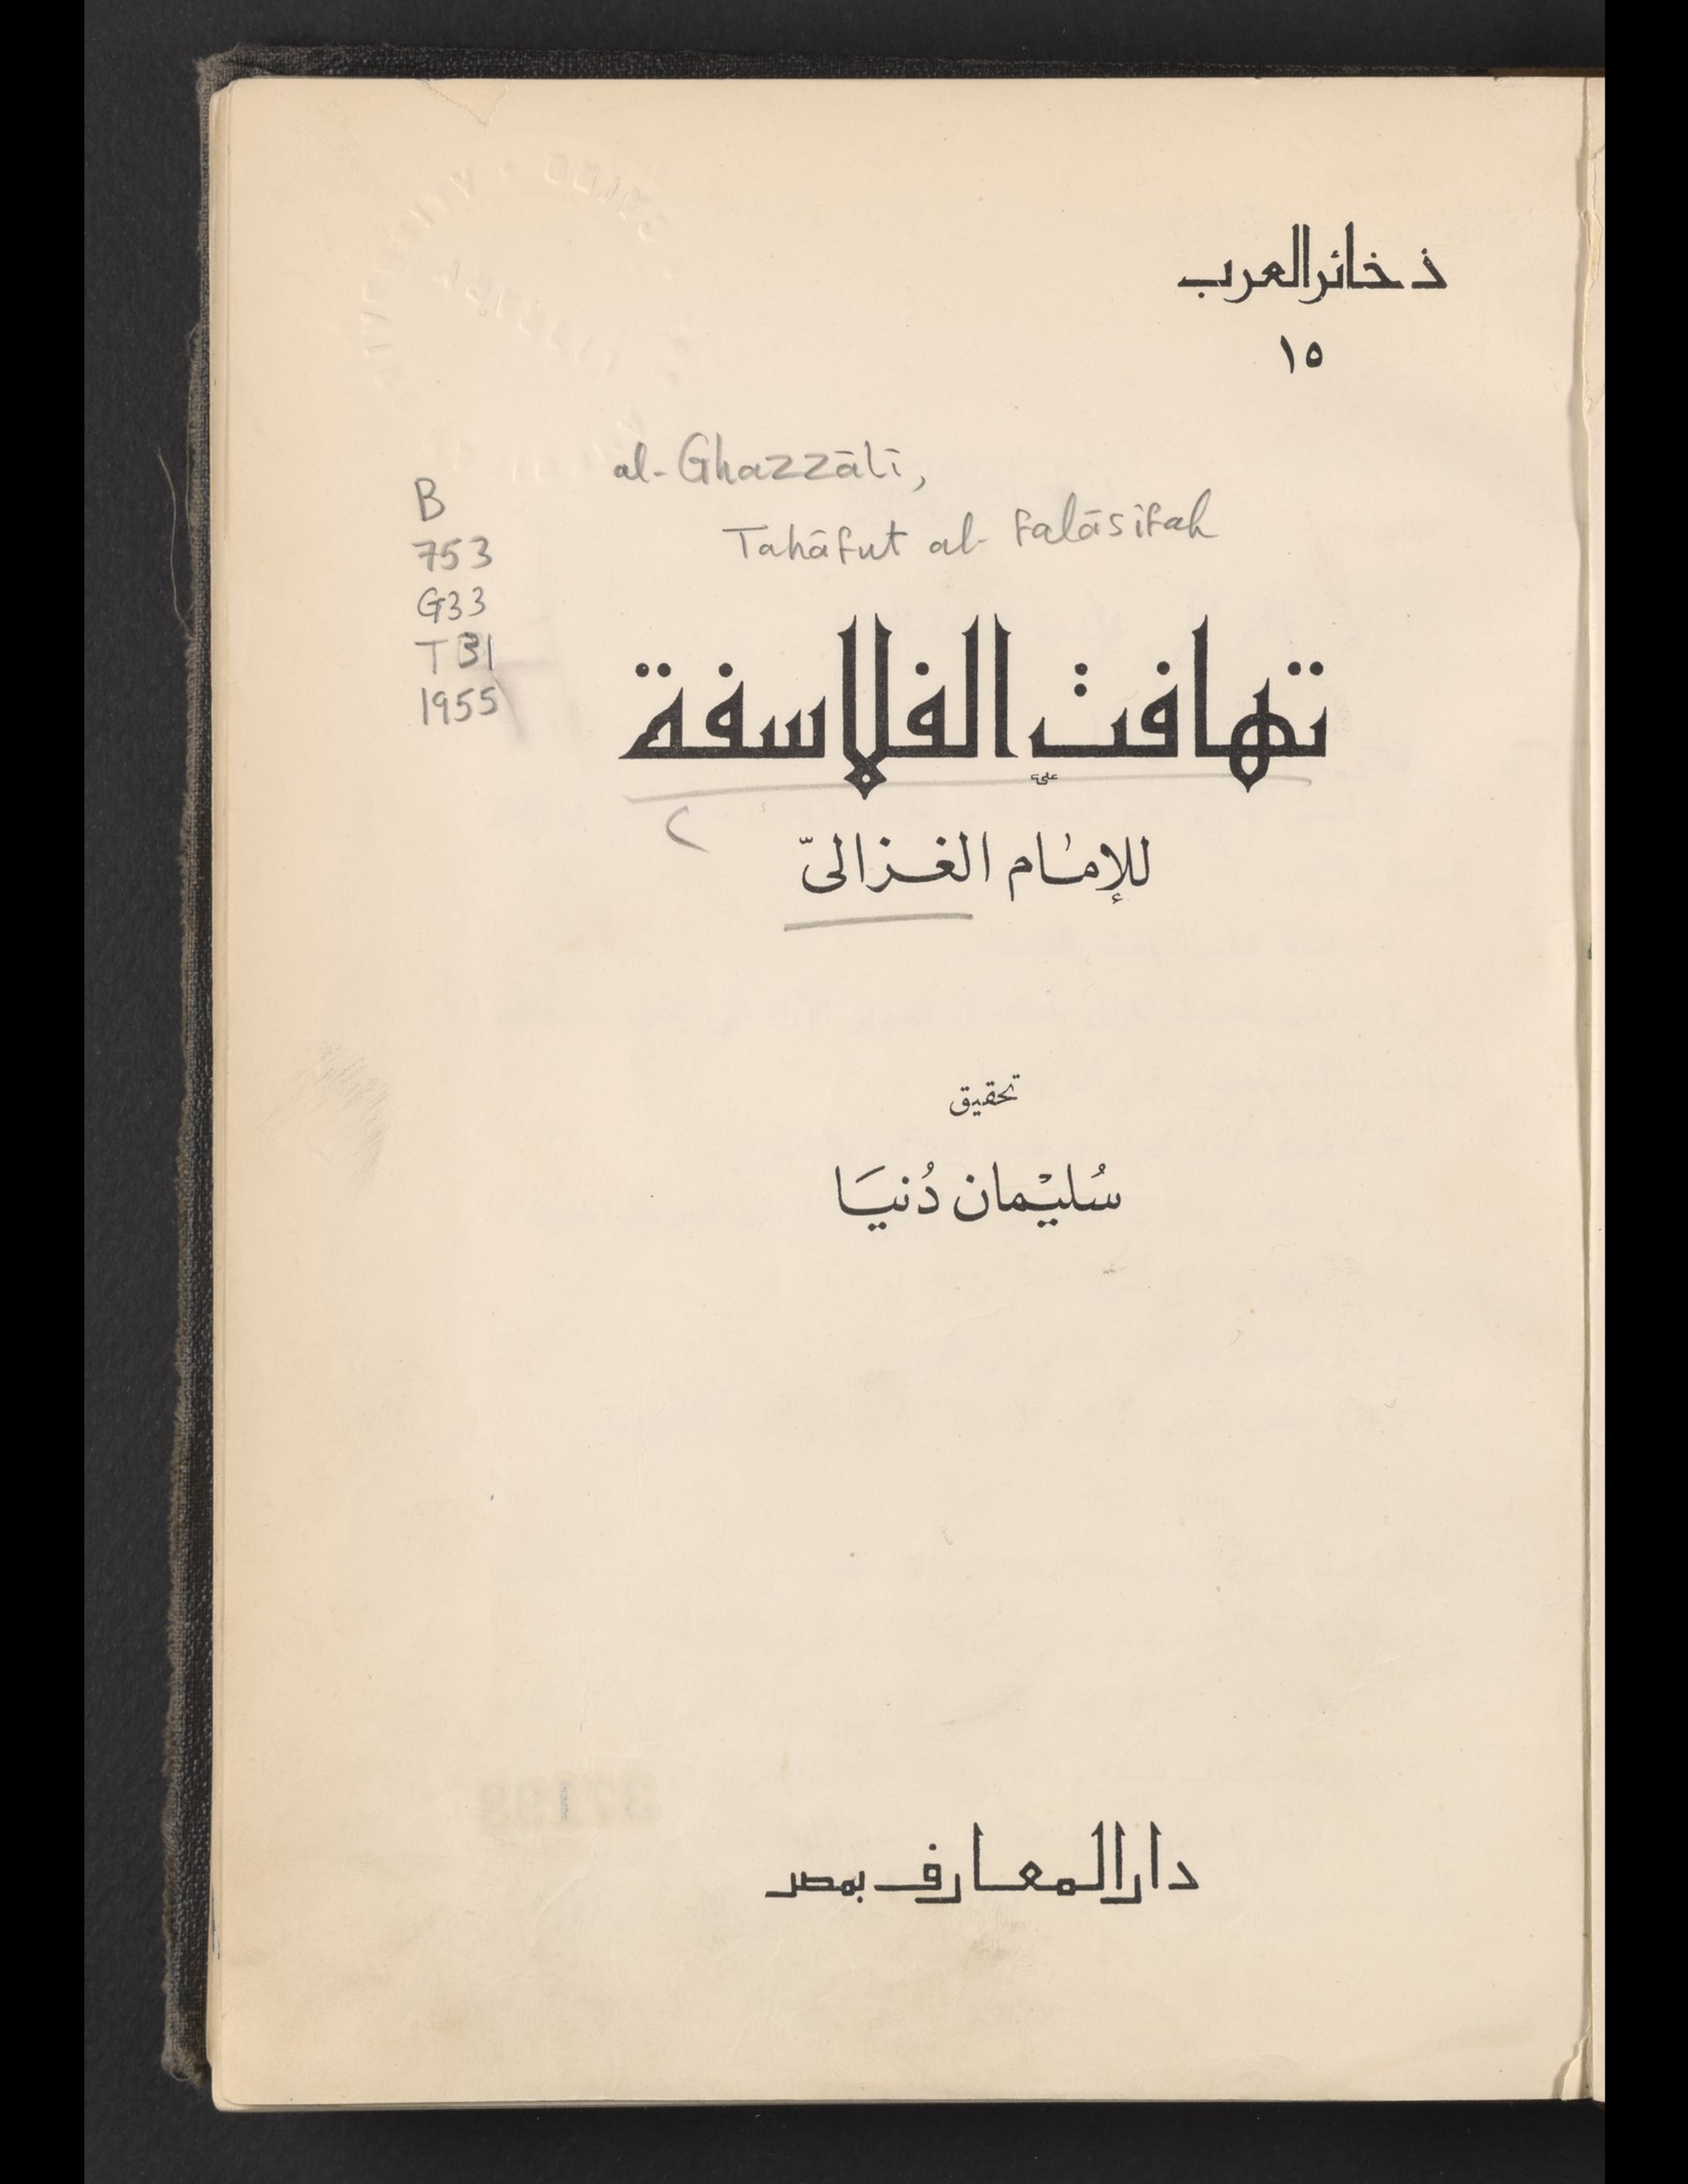 ذخائر العرب
١٥
al-Ghazzālī,
Tahāfut al-Falāsifah
B
753
G33
T B1
1955
تهافت الفلاسفة
للإمام الغزالىّ
تحقيق
سُليْمان دُنيَا
37198
دار المعارف بمصر